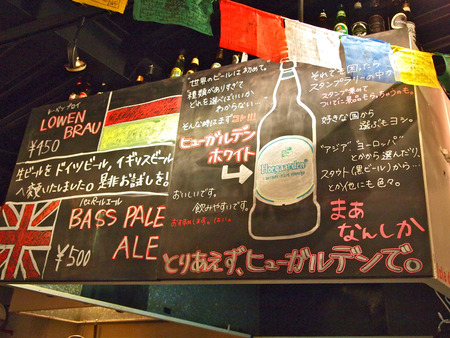 レーベンブロイ
LOWEN
BRAU
¥450
生ビールをドイツビール、イギリスビール
へ変えいたしました。是非お試しを!
バスペールエール
BASS PALE
ALE
¥500
"世界のビールは初めて。
種類がありすぎて
どれを選べばいいか
わからない…
そんな時はまずコレ!!!
ヒューガルデン
ホワイト
おいしいです。
飲みやすいです。
Hoegaarden
それでも困ったら
スタンプラリーの中
スタンプ集めて
ついでに景品もらっちゃうのも。
好きな国から
選ぶもヨシ。
"アジア" "ヨーロッパ"
とかから選んだり、
スタウト(黒ビール)から…
とか他にも色々。
まあ
なんしか
とりあえず、ヒューガルデンで。